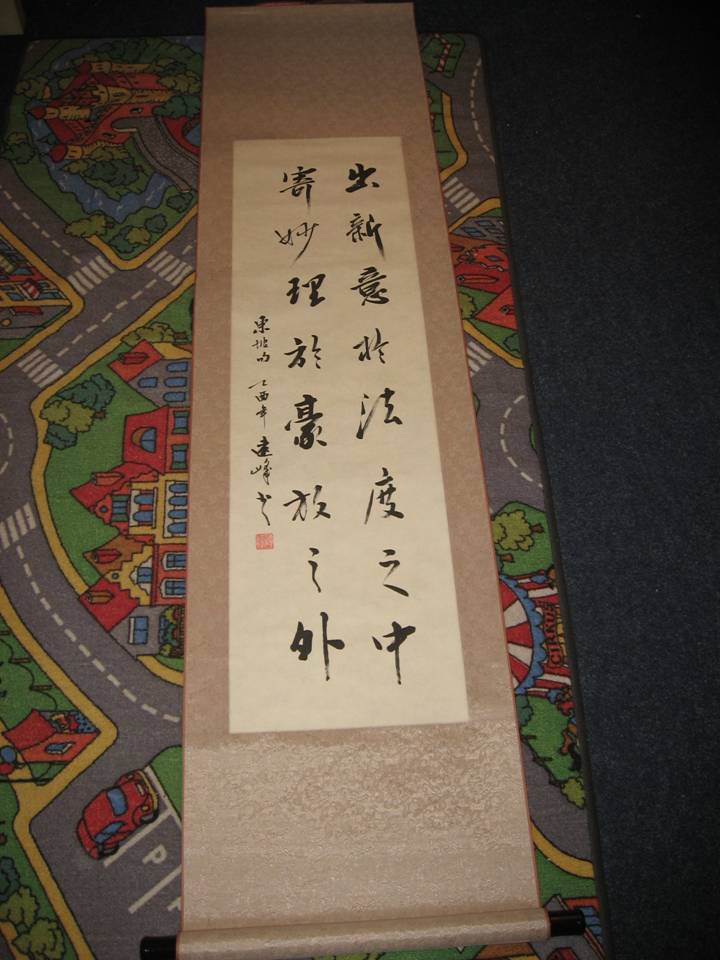 出新意於法度之中
寄妙理於豪放之外
東坡句 乙酉年 峰书
CIRKUS
P